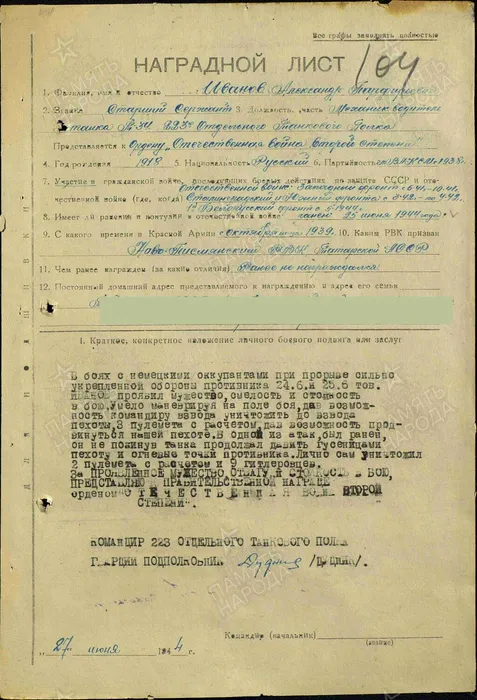 Все графы заполнять полностью
НАГРАДНОЙ ЛИСТ 104
1. Фамилия, имя и отчество Иванов, Александр
2. Звание Старший Сержант 3. Должность, часть Механик-водитель
танка Т-34 223го Отдельного Танкового Полка
Представляется к Ордену „Отечественная война Второй Степени"
4. Год рождения 1918 5. Национальность Русский 6. Партийность ВЛКСМ 1938г.
7. Участие в гражданской войне, последующих боевых действиях по защите СССР и отече-
ственной войне (где, когда) Отечественной войне: Западный фронт с 6.41-10.41
Сталинградский и Южный фронт с 8.42- по 4.42.
1й Белорусский фронт с 5.44г.
8. Имеет ли ранения и контузии в отечественной войне ранен 25 июня 1944 года
9. С какого времени в Красной Армии с Октября 1939. 10. Каким РВК призван
Ново-Письмянский РВК Татарской АССР
11. Чем ранее награжден (за какие отличия) Ранее не награждался
12. Постоянный домашний адрес представляемого к награждению и адрес его семьи
I. Краткое, конкретное изложение личного боевого подвига или заслуг
В боях с немецкими оккупантами при прорыве сильно
укрепленной обороны противника 24.6.и 25.6 тов.
ИВАНОВ проявил мужество, смелость и стойкость
в бою, умело маневрируя на поле боя, дав возмож-
ность командиру взвода уничтожить до взвода
пехоты, 3 пулемета с расчетом, дав возможность прод-
винуться нашей пехоте. В одной из атак, был ранен,
он не покинув танка продолжал давить гусеницами
пехоту и огневые точки противника. Лично сам уничтожил
2 пулемета с расчетом и 9 гитлеровцев.
За ПРОЯВЛЕННОЕ МУЖЕСТВО, ОТВАГУ И СТОЙКОСТЬ В БОЮ,
ПРЕДСТАВЛЯЮ К ПРАВИТЕЛЬСТВЕННОЙ НАГРАДЕ
орденом "ОТЕЧЕСТВЕННАЯ ВОЙНА ВТОРОЙ
СТЕПЕНИ".
КОМАНДИР 223 ОТДЕЛЬНОГО ТАНКОВОГО ПОЛКА
ГВАРДИИ ПОДПОЛКОВНИК
Командир (начальник)
(звание)
27 июня 1944 г.
ПАМЯТЬ НАРОДА